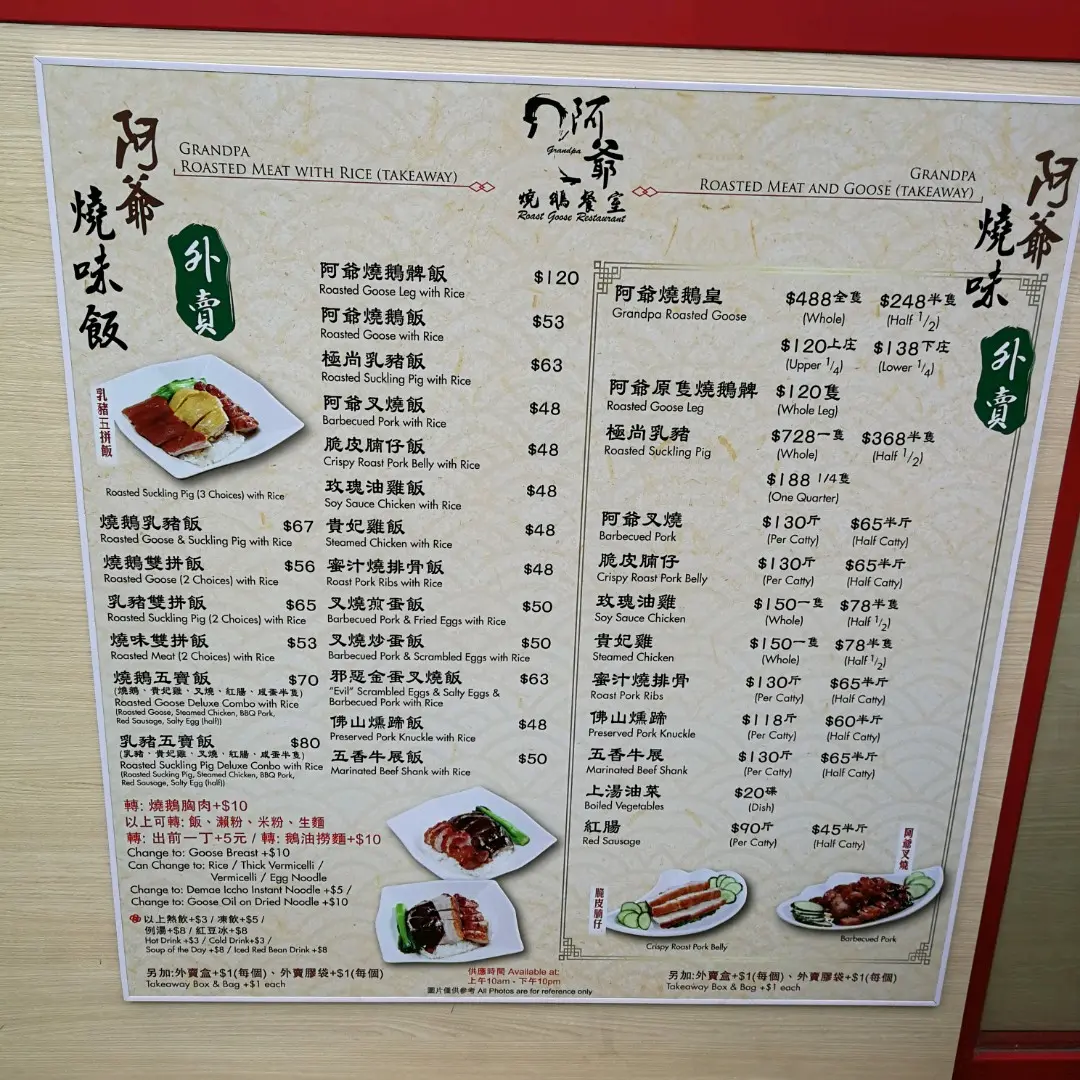 阿爺
燒味飯
外賣
GRANDPA
ROASTED MEAT WITH RICE (TAKEAWAY)
阿爺
Grandpa
燒鵝餐室
Roast Goose Restaurant
GRANDPA
ROASTED MEAT AND GOOSE (TAKEAWAY)
阿爺
燒味
外賣
乳豬五拼飯
Roasted Suckling Pig (3 Choices) with Rice
燒鵝乳豬飯 $67
Roasted Goose & Suckling Pig with Rice
燒鵝雙拼飯 $56
Roasted Goose (2 Choices) with Rice
乳豬雙拼飯 $65
Roasted Suckling Pig (2 Choices) with Rice
燒味雙拼飯 $53
Roasted Meat (2 Choices) with Rice
燒鵝五寶飯 $70
(燒鵝、貴妃雞、叉燒、紅腸、咸蛋半隻)
Roasted Goose Deluxe Combo with Rice
(Roasted Goose, Steamed Chicken, BBQ Pork,
Red Sausage, Salty Egg (half))
乳豬五寶飯 $80
(乳豬、貴妃雞、叉燒、紅腸、咸蛋半隻)
Roasted Suckling Pig Deluxe Conbo with Rice
(Roasted Sucking Pig, Steamed Chicken, BBQ Pork,
Red Sausage, Salty Egg (half))
轉: 燒鵝胸肉+$10
以上可轉: 飯、瀨粉、米粉、生麵
轉: 出前一丁+5元 / 轉: 鵝油撈麵+$10
Change to: Goose Breast +$10
Can Change to: Rice / Thick Vermicelli /
Vermicelli / Egg Noodle
Change to: Demae Iccho Instant Noodle +$5 /
Change to: Goose Oil on Dried Noodle +$10
以上熱飲+$3 / 凍飲+$5 /
例湯+$8 / 紅豆冰+$8
Hot Drink +$3 / Cold Drink+$3 /
Soup of the Day +$8 / Iced Red Bean Drink +$8
另加:外賣盒+$1(每個)、外賣膠袋+$1(每個)
Takeaway Box & Bag +$1 each
阿爺燒鵝髀飯 $120
Roasted Goose Leg with Rice
阿爺燒鵝飯 $53
Roasted Goose with Rice
極尚乳豬飯 $63
Roasted Suckling Pig with Rice
阿爺叉燒飯 $48
Barbecued Pork with Rice
脆皮腩仔飯 $48
Crispy Roast Pork Belly with Rice
玫瑰油雞飯 $48
Soy Sauce Chicken with Rice
貴妃雞飯 $48
Steamed Chicken with Rice
蜜汁燒排骨飯 $48
Roast Pork Ribs with Rice
叉燒煎蛋飯 $50
Barbecued Pork & Fried Eggs with Rice
叉燒炒蛋飯 $50
Barbecued Pork & Scrambled Eggs with Rice
邪惡金蛋叉燒飯 $63
"Evil" Scrambled Eggs & Salty Eggs &
Barbecued Pork with Rice
佛山燻蹄飯 $48
Preserved Pork Knuckle with Rice
五香牛展飯 $50
Marinated Beef Shank with Rice
供應時間 Available at:
上午10am - 下午10pm
圖片僅供參考 All Photos are for reference only
阿爺燒鵝皇 $488全隻 $248半隻
Grandpa Roasted Goose (Whole) (Half 1/2)
$120上庄 $138下庄
(Upper 1/4) (Lower 1/4)
阿爺原隻燒鵝髀 $120隻
Roasted Goose Leg (Whole Leg)
極尚乳豬 $728一隻 $368半隻
Roasted Suckling Pig (Whole) (Half 1/2)
$188 1/4隻
(One Quarter)
阿爺叉燒 $130斤 $65半斤
Barbecued Pork (Per Catty) (Half Catty)
脆皮腩仔 $130斤 $65半斤
Crispy Roast Pork Belly (Per Catty) (Half Catty)
玫瑰油雞 $150一隻 $78半隻
Soy Sauce Chicken (Whole) (Half 1/2)
貴妃雞 $150一隻 $78半隻
Steamed Chicken (Whole) (Half 1/2)
蜜汁燒排骨 $130斤 $65半斤
Roast Pork Ribs (Per Catty) (Half Catty)
佛山燻蹄 $118斤 $60半斤
Preserved Pork Knuckle (Per Catty) (Half Catty)
五香牛展 $130斤 $65半斤
Marinated Beef Shank (Per Catty) (Half Catty)
上湯油菜 $20碟
Boiled Vegetables (Dish)
紅腸 $90斤 $45半斤
Red Sausage (Per Catty) (Half Catty)
脆皮腩仔
Crispy Roast Pork Belly
阿爺叉燒
Barbecued Pork
另加:外賣盒+$1(每個)、外賣膠袋+$1(每個)
Takeaway Box & Bag +$1 each